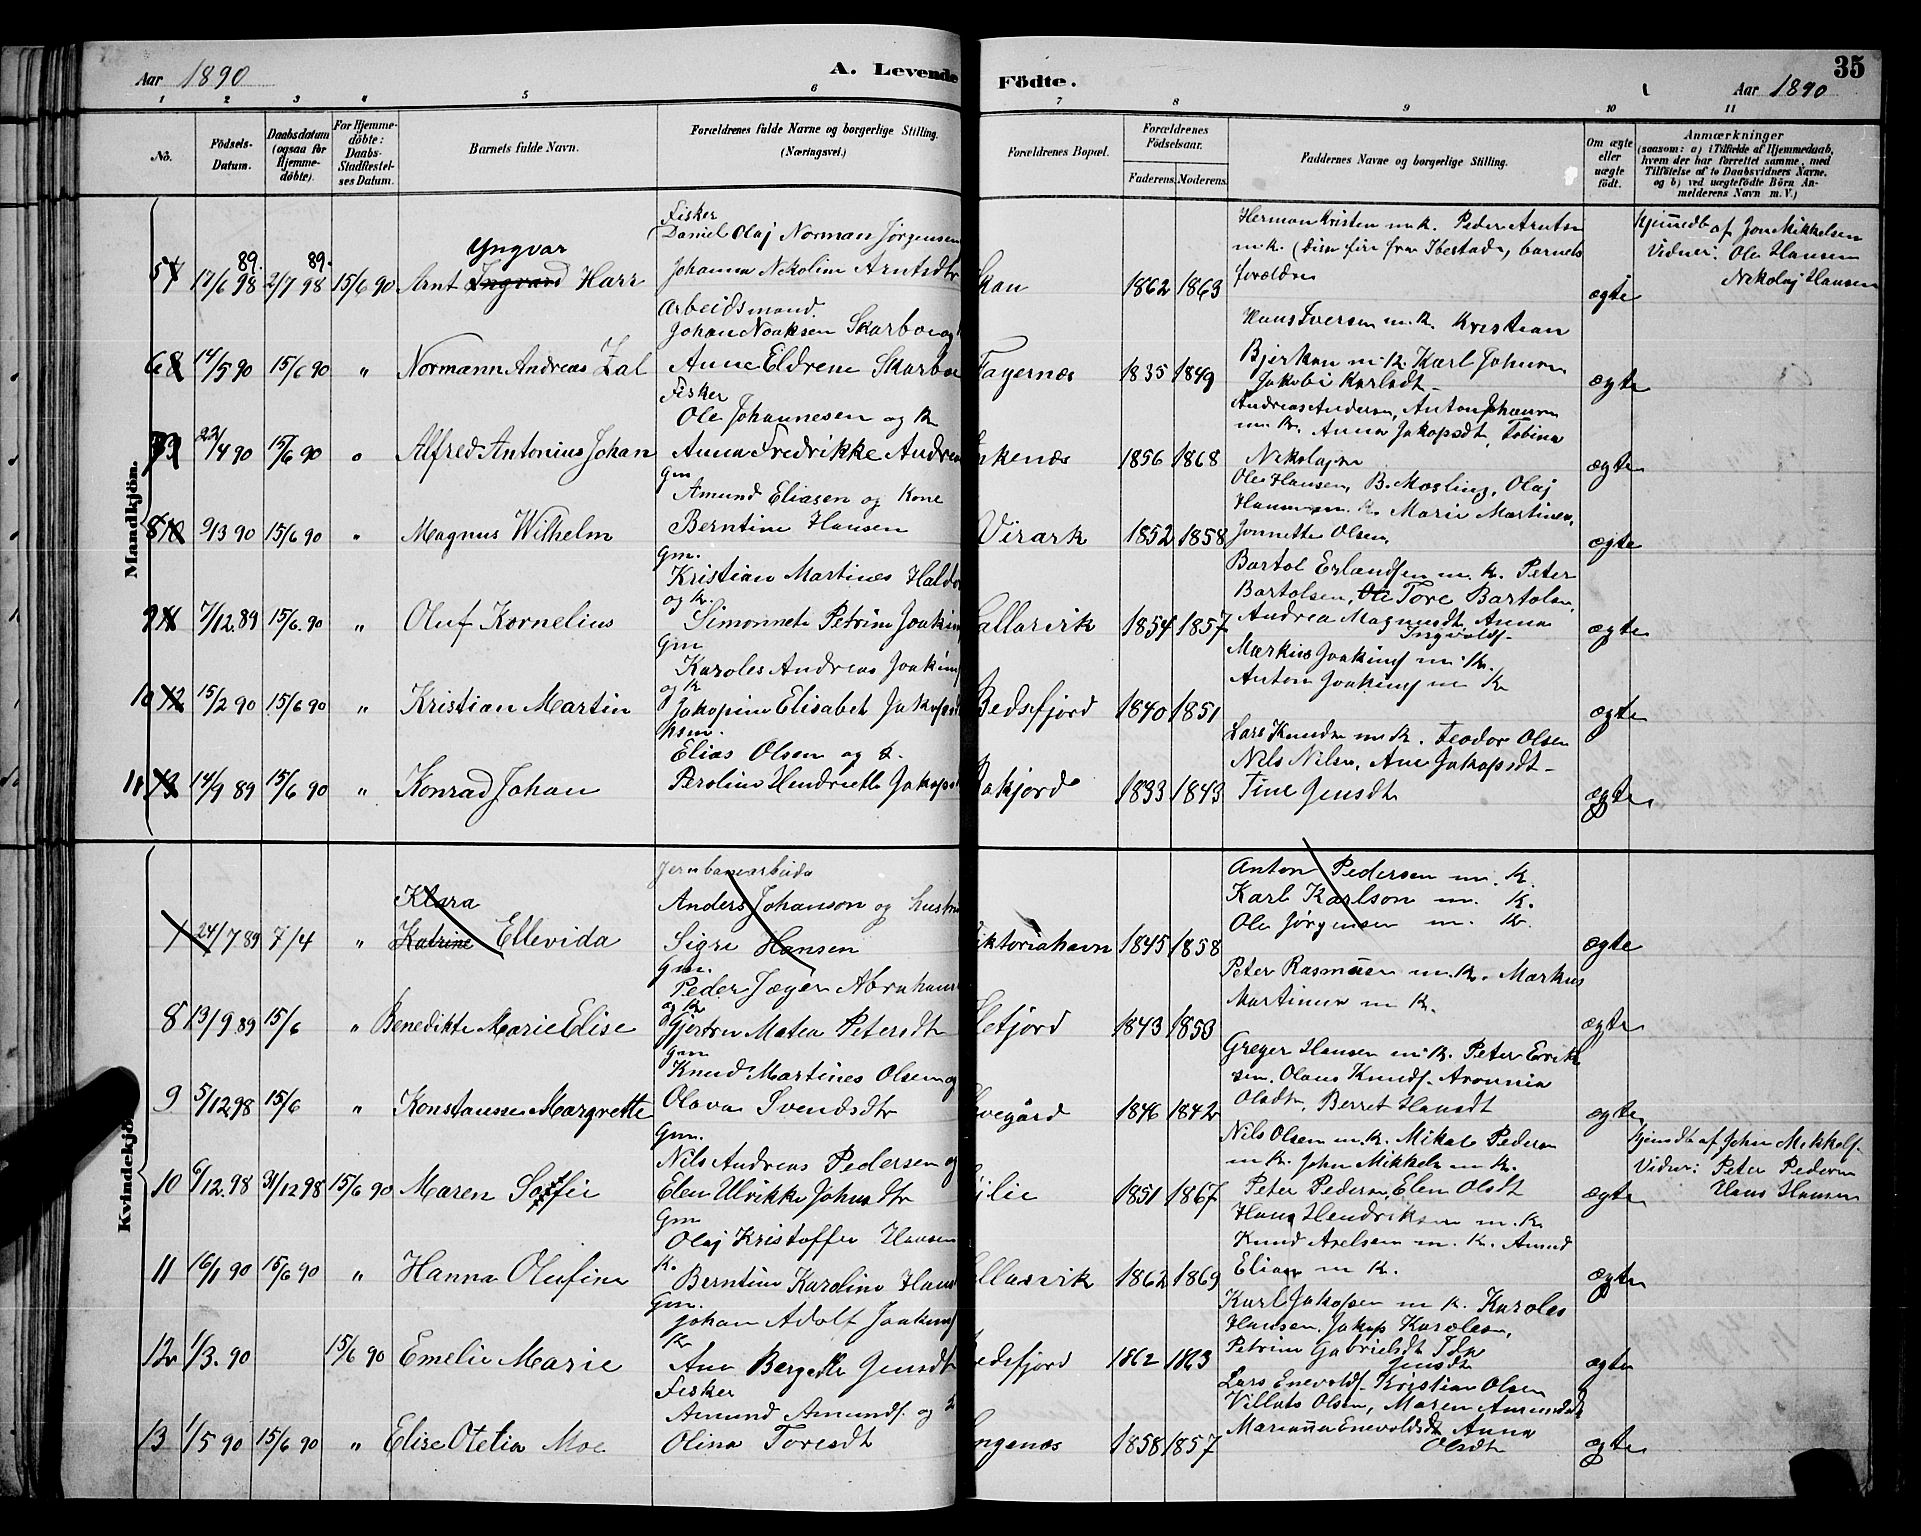 Aar 1890
A. Levende Födte.
35
Aar 1890
1 2 3 4 5 6 7 8 9 10 11
No.
Födsels-Datum.
Daabsdatum (ogsaa for Hjemme-döbte).
For Hjemme-döbte: Daabs-Stadfæstel-ses Datum.
Barnets fulde Navn.
Forældrenes fulde Navne og borgerlige Stilling.
(Næringsvei.)
Forældrenes Bopæl.
Forældrenes Födselsaar.
Faderens. Moderens.
Faddernes Navne og borgerlige Stilling.
Om ægte eller uægte födt.
Anmærkninger
(saasom: a) i Tilfælde af Hjemmedaab, hvem der har forrettet samme, med Tilföielse af to Daabsvidners Navne. og b) ved uægtefödte Börn Anmelderens Navn m. V.)
Mandkjön.
Fisker
Daniel Olaj Norman Jørgensen
Yngvar
5 17/6 98 89. 2/7 98 89. 15/6 90 Arnt Ingvard Harr
Johanna Nekoline Arntsdtr
Skan 1862 1863
Herman Kristen m.k. Peder Arntsn
m.k. (disse fire fra Ibestad), barnets
forældre
ægte
Hjemmedb af Jon Mikkelsen
Vidner: Ole Hansen
Nikolaj Hansen
Arbeidsmand.
Johan Noaksen Skarbo og
6 14/5 90 15/6 90 " Normann Andreas Zal
Anne Eldrene Skarbo
Fagernæs 1835 1849
Hans Iversen m.K. Kristian
Bjerkan m.K. Karl Johnsn
Jakobi Karlsdt
ægte
Fisker
Ole Johannesen og K
7 22/4 90 15/6 90 " Alfred Antonius Johan
Anna Fredrikke Andrea
Ankenæs 1856 1868
Andreas Andersn, Anton Johansn
m.K. Anna Jakopsdt, Tobina
Nikolajsn
ægte
Gm
Amund Eliasen og Kone
8 9/3 90 15/6 90 " Magnus Wilhelm
Berntine Hansen
Virark 1852 1858
Ole Hansen, B. Mosling, Olaj
Hansen m. K. Marie Martinsn,
Jonnette Olsen
ægte
Gm.
Kristian Martines Haldo
og K.
9 7/12.89 15/6.90 " Oluf Kornelius
Simonnete Petrine Joakim
allarvik 1854 1857
Bartol Erlandsen m. K. Peter
Bartolsen, Ole Tore Bartolsn,
Andrea Magnusdt, Anna
Ingvalds
ægte
Gm
Karoles Andreas Joakims
og K
10 15/2 90 15/6 90 " Kristian Martin
Jakopine Elisabet Jakopsd
Bedsfjord 1840 1851
Markus Joakims m. K.
Anton Joakims m K
ægte
Hsm.
Elias Olsen og K.
11 14/9 89 15/6 90 " Konrad Johan
Peroline Hendriette Jakops
akjord 1833 1843
Lars Knudsn m.K. Teodor Olsen
Nils Nilsn, Ane Jakopsdt
Tine Jensdt
ægte
Kvindekjön.
Jernbanearbeider
Klara
1 24/7 89 7/4 " Katrine Ellevida
Anders Johanson og hustru
Sigri Hansen
iktoriahavn 1845 1858
Anton Pedersen m. K.
Karl Karlson m. K.
Ole Jørgensen m. K.
ægte
Gm.
Peder Jæger Abrahams
og K
8 13/9.89 15/6 " Benedikte Marie Elise
Gjertru Matea Petersdt
Hetjord 1843 1853
Peter Rasmusen m.K. Markus
Martinsn m K.
ægte
Gm
Knud Martines Olsen og
9 5/12.98 15/6 " Konstansse Margrette
Olava Svendsdtr
vegård 1846 1842
Greger Hansen m.K. Peter Erik
sen. Olaus Knuds. Aronnia
Olsdtr, Berret Hansdt
ægte
Gm.
Nils Andreas Pedersen og
10 6/12.98 31/12 98 15/6 90 Maren Soffie
Elen Ulrikke Johnsdtr
Lilie 1851 1867
Nils Olsen m.K. Mikal Pedersn
m K. John Mikkels m K.
Peter Pedersn, Elen Olsdt
ægte
Hjemdt af John Mikkels.
Vidner: Peter Pedersn
Hans Hansen
Gm
Olaj Kristoffer Hansen
K.
11 16/1 90 15/6 90 " Hanna Olufine
Berntine Karoline Hans
llasvik 1862 1869
Hans Hendriksen m. K.
Knud Axelsen m. K. Amund
Eliasn m K.
ægte
Gm.
Johan Adolf Joakims
K
12 1/3.90 15/6 90 Emelie Marie
Ane Bergette Jensdt
edsfjord 1862 1863
Karl Jakopsen m K. Karoles
Hansen, Jakop Karolesn,
Petrine Gabrielsdt
Jensdt
ægte
Fisker
Amund Amunds. og
13 1/5 90 15/6 90 " Elise Otelia Moe
Olina Toresdt
ngenæs 1858 1857
Lars Enevolds. Kristian Olsen
Villats Olsen, Maren Amundsd
Marianna Enevoldsdt Anna
Olsdt
ægte